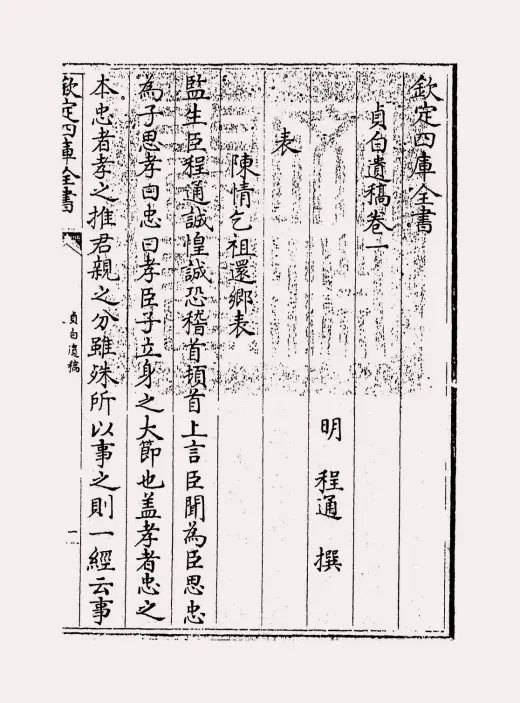 欽定四庫全書
貞白遺稿卷一
明 程通 撰
表
陳情乞祖還鄉表
監生臣程通誠惶誠恐稽首頓首上言臣聞為臣思忠
為子思孝曰忠曰孝臣子立身之大節也盖孝者忠之
本忠者孝之推君親之分雖殊所以事之則一經云事
欽定四庫全書
貞白遺稿
一